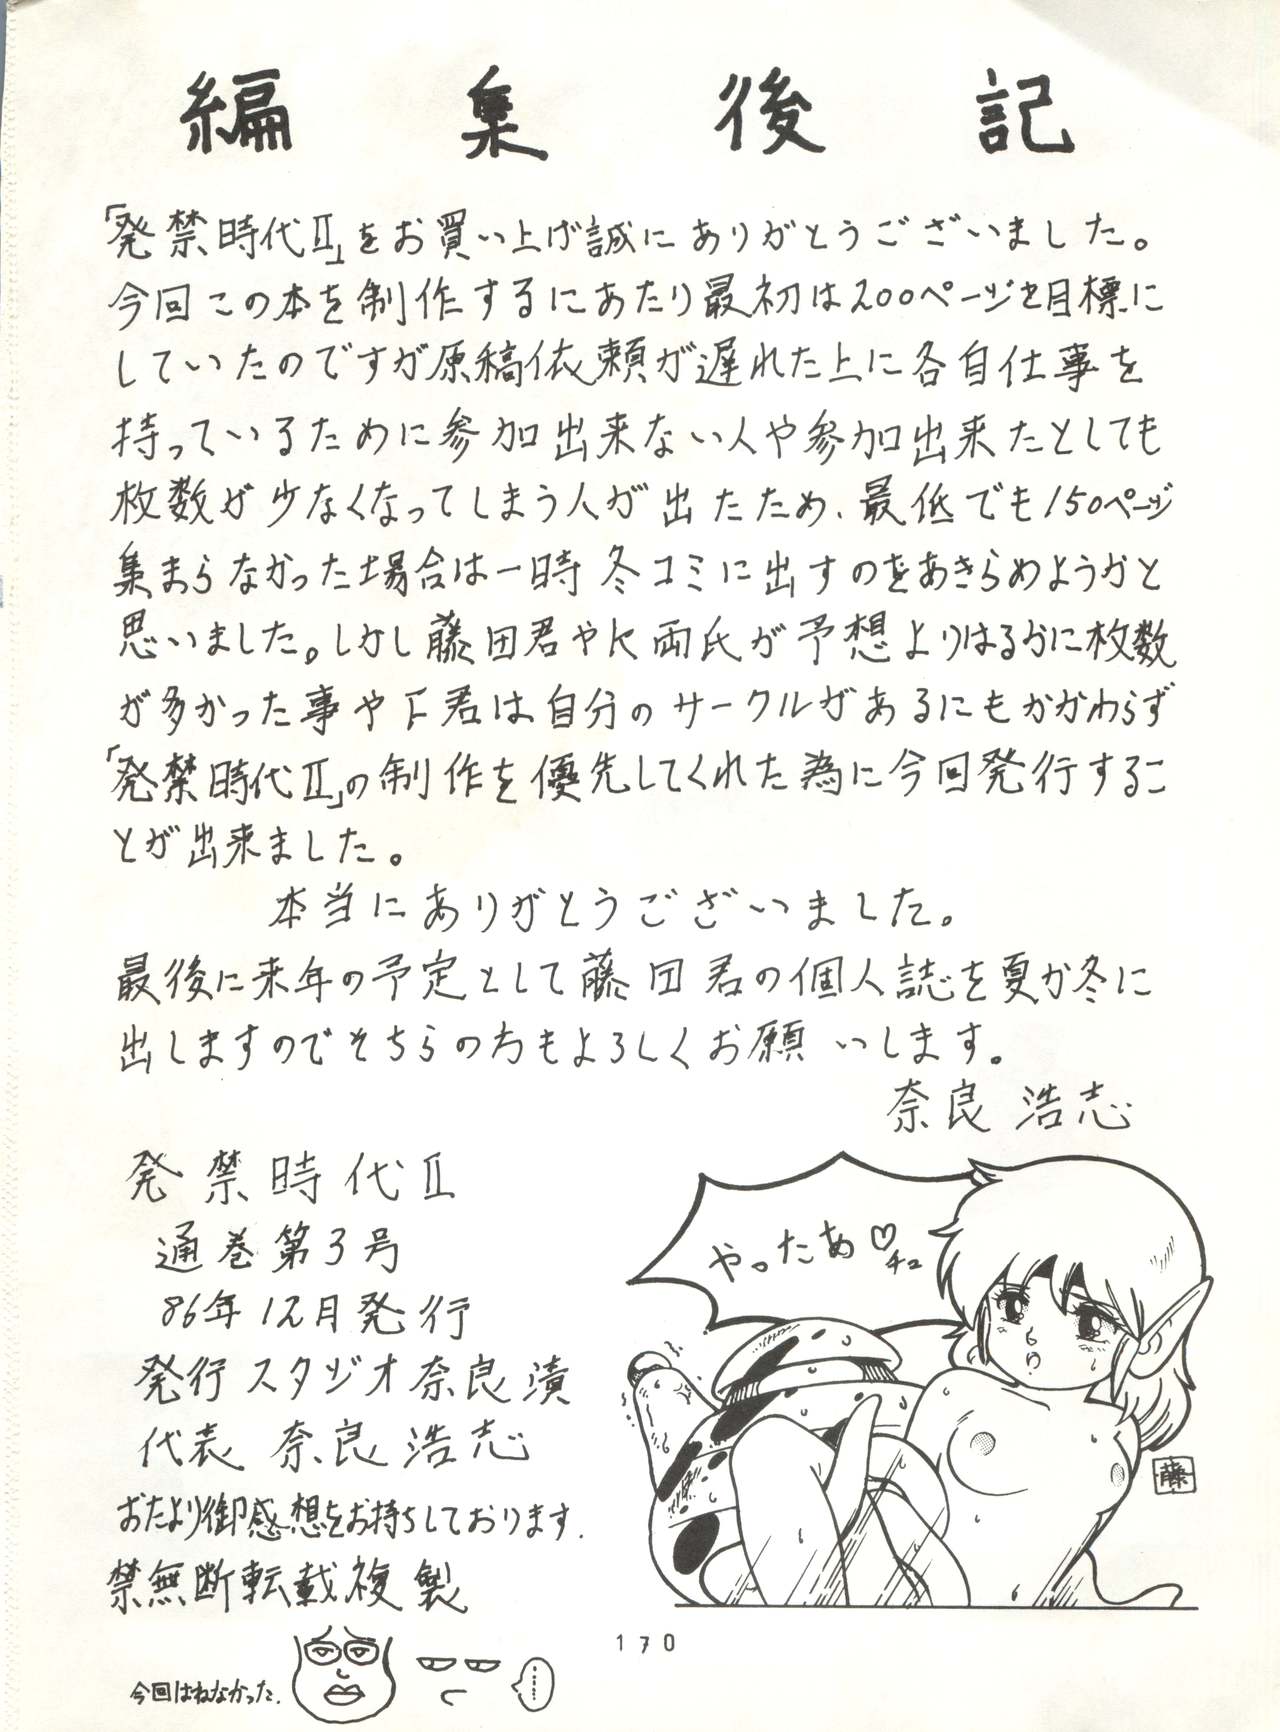 編集後記
「発禁時代Ⅱ」をお買い上げ誠にありがとうございました。
今回この本を制作するにあたり最初は200ページを目標に
していたのですが原稿依頼が遅れた上に各自仕事を
持っているために参加出来ない人や参加出来たとしても
枚数が少なくなってしまう人が出たため、最低でも150ページ
集まらなかった場合は一時冬コミに出すのをあきらめようかと
思いました。しかし藤田君やK両氏が予想よりはるかに枚数
が多かった事やF君は自分のサークルがあるにもかかわらず
「発禁時代Ⅱ」の制作を優先してくれた為に今回発行するこ
とが出来ました。
本当にありがとうございました。
最後に来年の予定として藤田君の個人誌を夏か冬に
出しますのでそちらの方もよろしくお願いします。
奈良 浩志
発禁時代Ⅱ
通巻第3号
86年12月発行
発行 スタジオ奈良漬
代表 奈良 浩志
おたより御感想をお持ちしております.
禁無断転載複製
やったあ♡
チュ
藤
170
今回はねなかった.